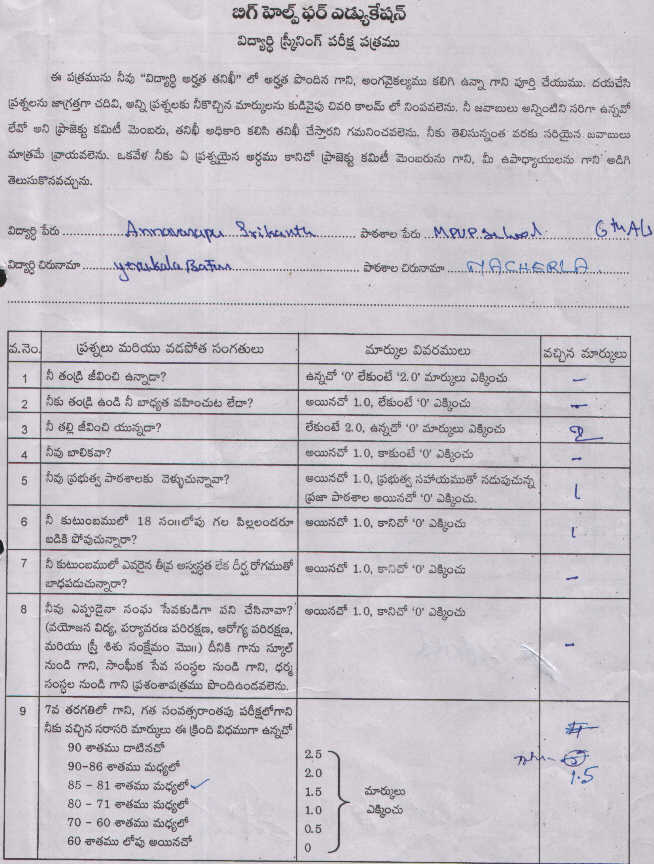 బిగ్ హెల్ప్ ఫర్ ఎడ్యుకేషన్
విద్యార్ధి స్క్రీనింగ్ పరీక్ష పత్రము
ఈ పత్రమును నీవు "విద్యార్ధి అర్హత తనిఖీ" లో అర్హత పొందిన గాని, అంగవైకల్యము కలిగి ఉన్నా గాని పూర్తి చేయుము. దయచేసి
ప్రశ్నలను జాగ్రత్తగా చదివి, అన్ని ప్రశ్నలకు నీకొచ్చిన మార్కులను కుడివైపు చివరి కాలమ్ లో నింపవలెను. నీ జవాబులు అన్నింటిని సరిగా ఉన్నవో
లేవో అని ప్రాజెక్టు కమిటీ మెంబరు, తనిఖీ అధికారి కలిసి తనిఖీ చేస్తారని గమనించవలెను. నీకు తెలిసున్నంత వరకు సరియైన జవాబులు
మాత్రమే వ్రాయవలెను. ఒకవేళ నీకు ఏ ప్రశ్నయైన అర్ధము కానిచో ప్రాజెక్టు కమిటీ మెంబరును గాని, మీ ఉపాధ్యాయులను గాని అడిగి
తెలుసుకొనవచ్చును.
విద్యార్ధి పేరు Annavarapu Srikanth పాఠశాల పేరు MPUP School
విద్యార్ధి చిరునామా yerukala పాఠశాల చిరునామా MACHERLA
వ.నెం. ప్రశ్నలు మరియు వడపోత సంగతులు మార్కుల వివరములు వచ్చిన మార్కులు
1 నీ తండ్రి జీవించి ఉన్నాడా? ఉన్నచో '0' లేకుంటే '2.0' మార్కులు ఎక్కించు –
2 నీకు తండ్రి ఉండి నీ బాధ్యత వహించుట లేదా? అయినచో 1.0, లేకుంటే '0' ఎక్కించు –
3 నీ తల్లి జీవించి యున్నదా? లేకుంటే 2.0, ఉన్నచో '0' మార్కులు ఎక్కించు 2
4 నీవు బాలికవా? అయినచో 1.0, కాకుంటే '0' ఎక్కించు –
5 నీవు ప్రభుత్వ పాఠశాలకు వెళ్ళుచున్నావా? అయినచో 1.0, ప్రభుత్వ సహాయముతో నడుపుచున్న
ప్రజా పాఠశాల అయినచో '0' ఎక్కించు. 1
6 నీ కుటుంబములో 18 సం॥లోపు గల పిల్లలందరూ అయినచో 1.0, కానిచో '0' ఎక్కించు 1
బడికి పోవుచున్నారా?
7 నీ కుటుంబములో ఎవరైన తీవ్ర అస్వస్థత లేక దీర్ఘ రోగముతో అయినచో 1.0, కానిచో '0' ఎక్కించు –
బాధపడుచున్నారా?
8 నీవు ఎప్పుడైనా సంఘ సేవకుడిగా పని చేసినావా? అయినచో 1.0, కానిచో '0' ఎక్కించు
(వయోజన విద్య, పర్యావరణ పరిరక్షణ, ఆరోగ్య పరిరక్షణ,
మరియు స్త్రీ శిశు సంక్షేమం మొ॥) దీనికి గాను స్కూల్ –
నుండి గాని, సాంఘీక సేవ సంస్థల నుండి గాని, ధర్మ
సంస్థల నుండి గాని ప్రశంశాపత్రము పొందిఉండవలెను.
9 7వ తరగతిలో గాని, గత సంవత్సరాంతపు పరీక్షలోగాని
నీకు వచ్చిన సరాసరి మార్కులు ఈ క్రింది విధముగా ఉన్నచో
90 శాతము దాటినచో 2.5
90-86 శాతము మధ్యలో 2.0
85 – 81 శాతము మధ్యలో 1.5 మార్కులు 1.5
80 – 71 శాతము మధ్యలో 1.0 ఎక్కించు
70 – 60 శాతము మధ్యలో 0.5
60 శాతము లోపు అయినచో 0